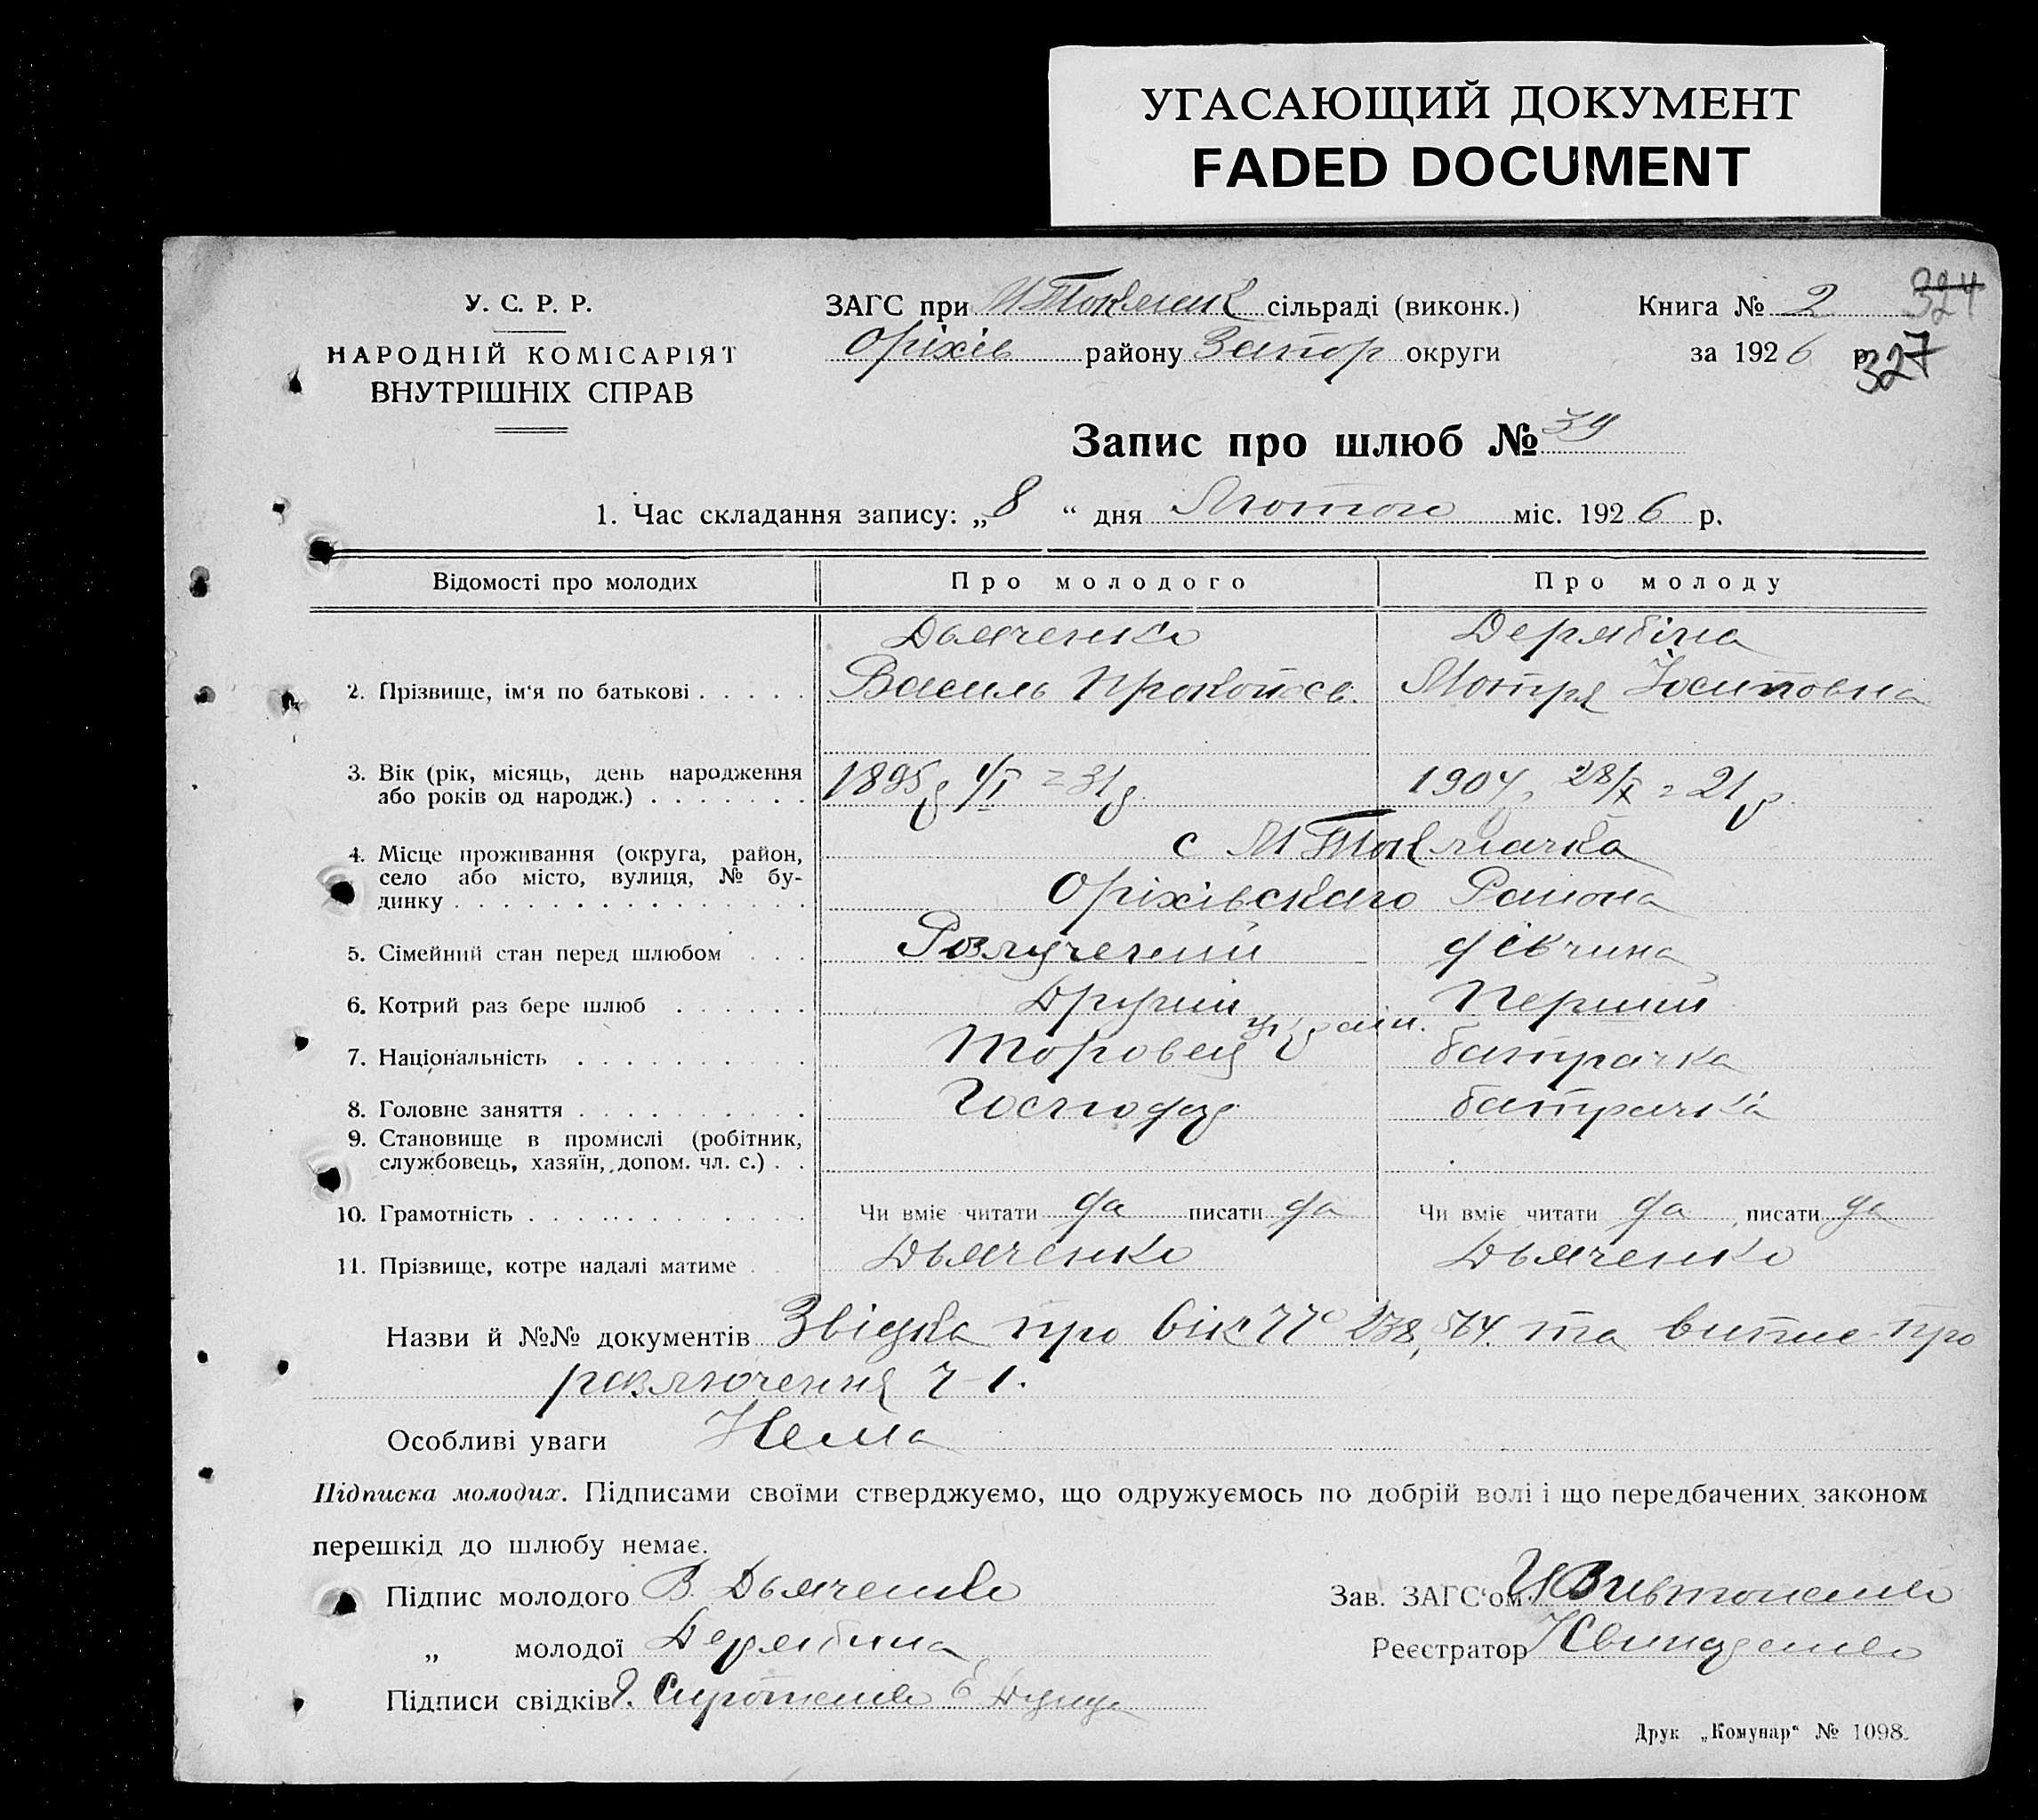 УГАСАЮЩИЙ ДОКУМЕНТ
FADED DOCUMENT
У. С. Р. Р.
НАРОДНІЙ КОМІСАРІЯТ
ВНУТРІШНІХ СПРАВ
ЗАГС при М Токмацк сільраді (виконк.)
Оріхів району Запор округи
Книга № 2 324
за 1926 р. 327
Запис про шлюб № 39
1. Час складання запису: „8“ дня Лютого міс. 1926 р.
Відомості про молодих Про молодого Про молоду
Дьяченко Дерябіна
2. Прізвище, ім‘я по батькові Василь Прокопов. Мотря Йосиповна
3. Вік (рік, місяць, день народження
або років од народж.) 1895р 1/I = 31р. 1904р 28/X = 21р.
4. Місце проживання (округа, район,
село або місто, вулиця, № бу-
динку
с М Токмачка
Оріхівскаго Району
5. Сімейний стан перед шлюбом Розлучений дівчина
6. Котрий раз бере шлюб Другий Перший
7. Національність україн. батрачка
8. Головне заняття Господар батрачка
9. Становище в промислі (робітник,
службовець, хазяїн, допом. чл. с.)
10. Грамотність Чи вміє читати да писати да Чи вміє читати да писати да
11. Прізвище, котре надалі матиме Дьяченко Дьяченко
Назви й №№ документів Звідка про вік № 238, 564. та випис про
розлючення ч-1.
Особливі уваги Нема
Підписка молодих. Підписами своїми стверджуємо, що одружуємось по добрій волі і що передбачених законом
перешкід до шлюбу немає.
Підпис молодого В Дьяченко
„ молодої Дерябина
Підписи свідків Сиротенко Е
Зав. ЗАГС‘ом
Реєстратор
Друк „Комунар“ № 1098.